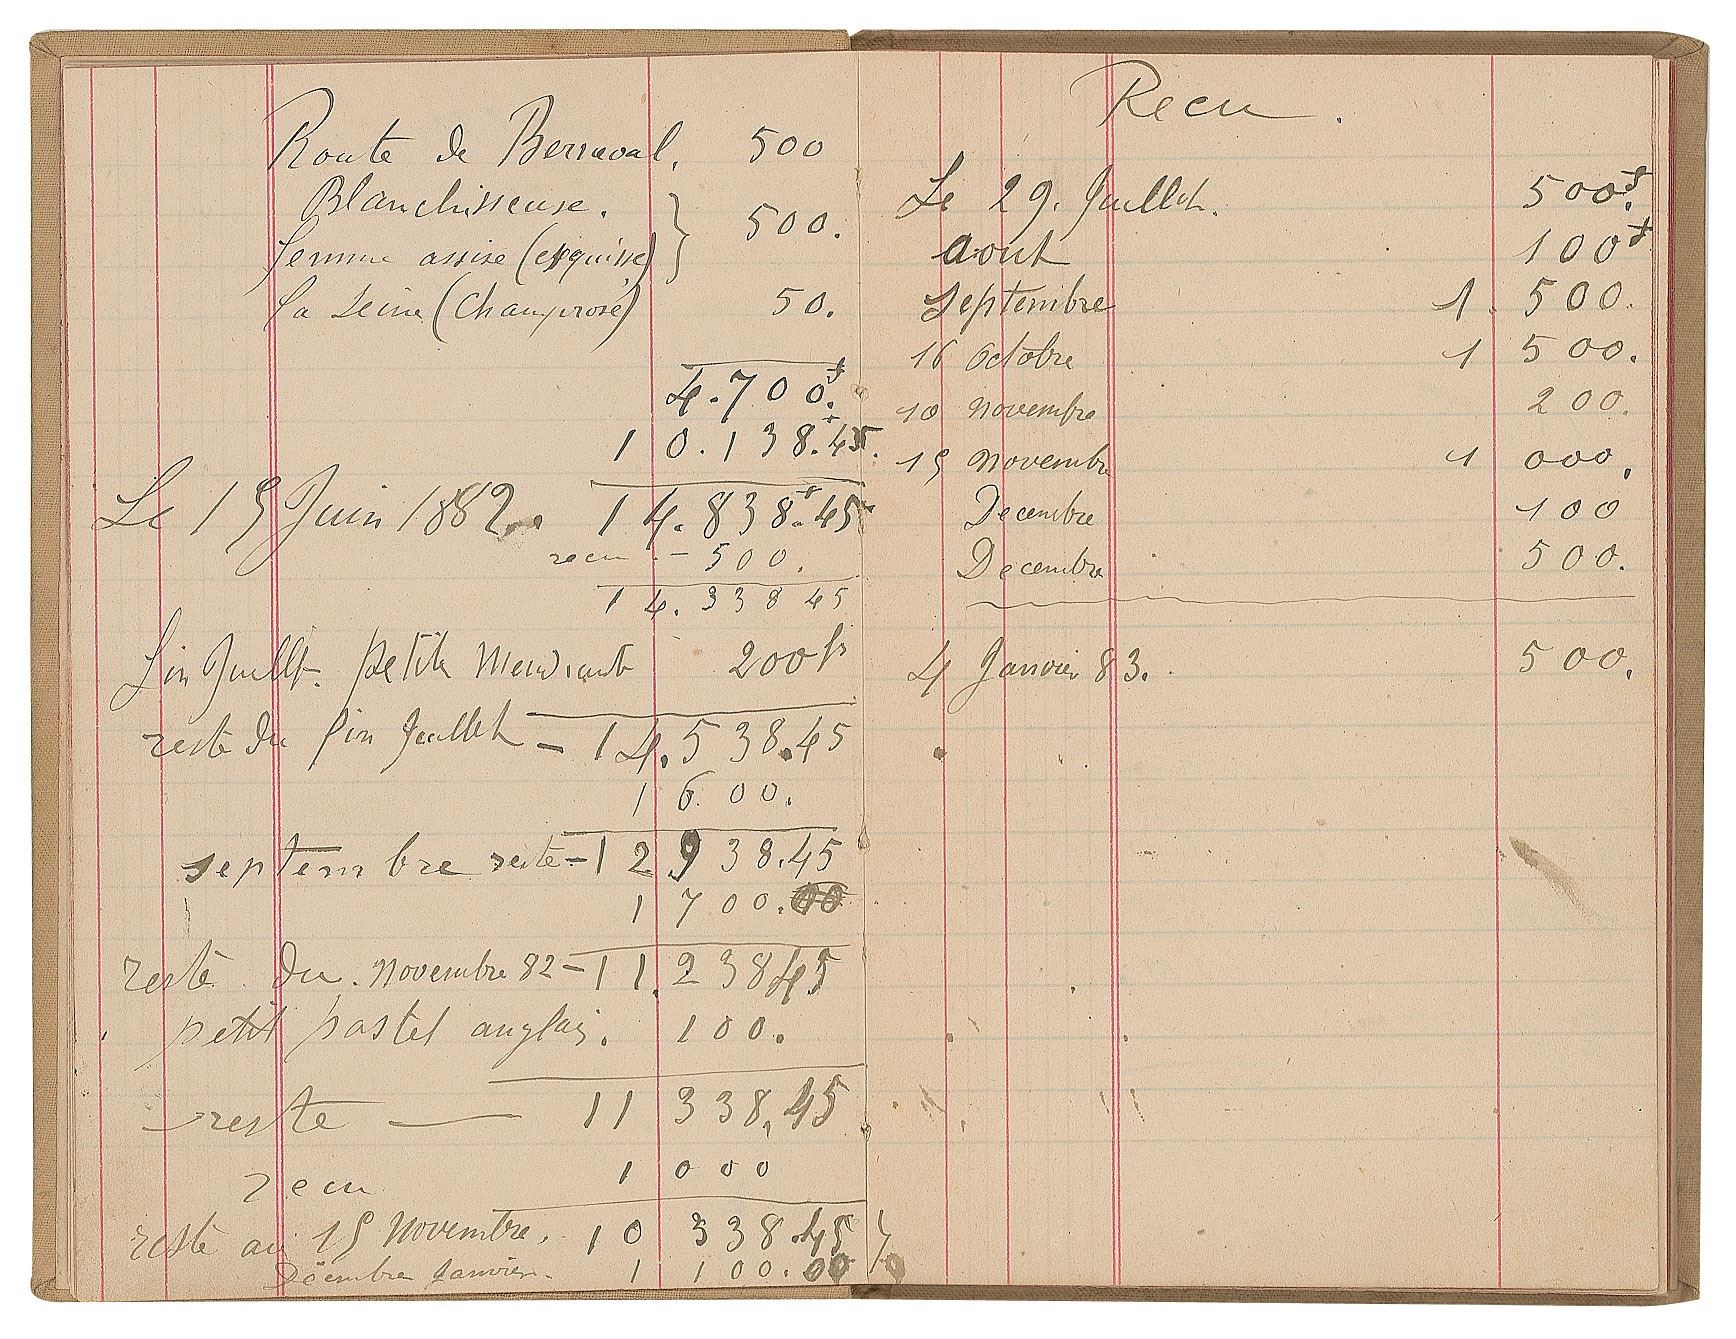 Route de Berneval. 500
Blanchisseuse.
femme assise (esquisse) } 500.
la Seine (Champrosé) 50.
4.700f
10.138.45.
Le 15 Juin 1882. 14.838f.45
recu - 500.
14.338 45
fin Juillet. petite Mendiante 200 fr
reste du fin Juillet - 14.538.45
1600.
septembre reste - 12938.45
1700.
reste du. Novembre 82 - 11.23845
petit pastel anglais. 100.
reste — 11338,45
recu 1000
reste au 15 Novembre. 10338.45
Décembre Janvier. 1100.00
Recu.
Le 29. Juillet. 500f.
aout 100f
septembre 1.500.
16 Octobre 1500.
10 Novembre 200.
15 Novembre 1000.
Decembre 100
Decembre 500.
4 Janvier 83. 500.